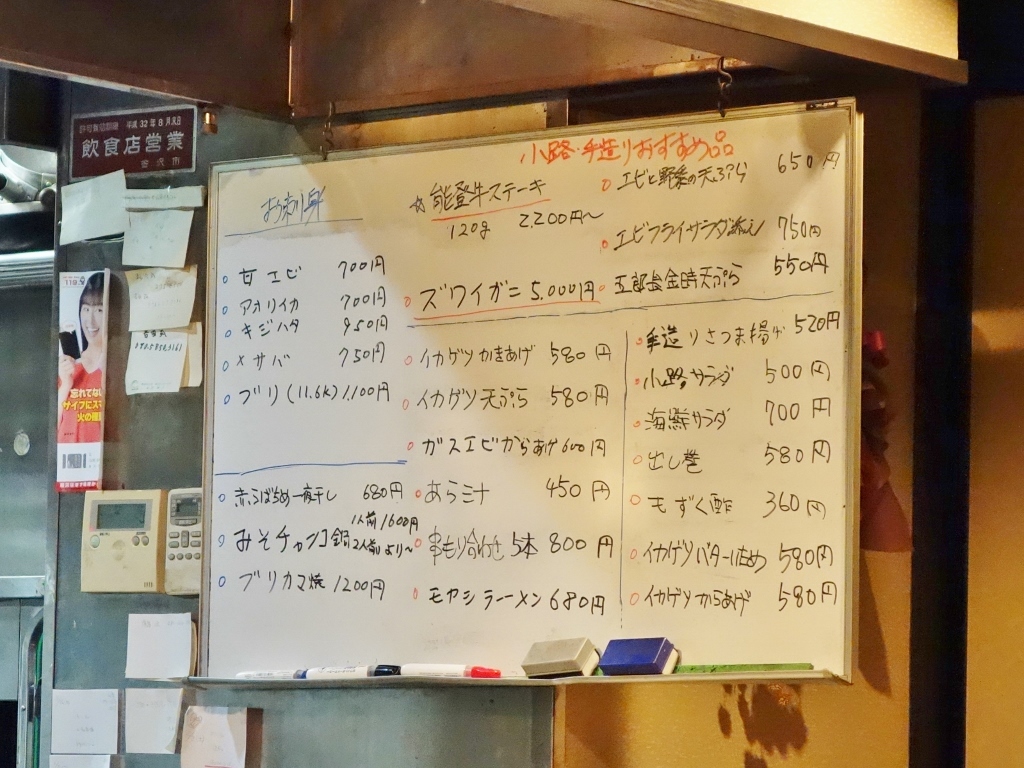 平成32年8月31日
飲食店営業
金沢市
忘れてない
サイフにスマ
火の確認
小路・手造りおすすめ品
お刺身
甘エビ 700円
アオリイカ 700円
キジハタ 950円
〆サバ 750円
ブリ(11.6k) 1,100円
赤ふばちめ一夜干し 680円
みそチャンコ鍋 1人前1600円
2人前より〜
ブリカマ焼 1200円
☆能登牛ステーキ
120g 2,200円〜
ズワイガニ 5,000円
イカゲソかきあげ 580円
イカゲソ天ぷら 580円
ガスエビからあげ 600円
あらミナ 450円
串もり合わせ 5本 800円
モヤシラーメン 680円
エビと野菜の天ぷら 650円
エビフライサラダ添え 750円
五郎島金時天ぷら 550円
手造りさつま揚げ 520円
小路サラダ 500円
海鮮サラダ 700円
出し巻 580円
もずく酢 360円
イカゲソバター炒め 580円
イカゲソからあげ 580円